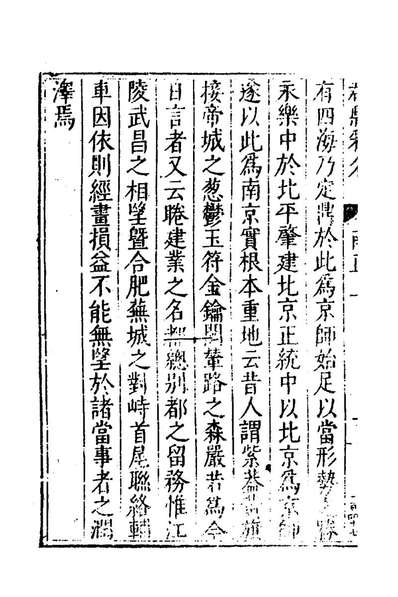 有四海乃定鼎於此爲京師始足以當形勢勝
永樂中於北平肇建北京正統中以北京爲京師
遂以此爲南京實根本重地云昔人謂紫蓋旗
接帝城之葱鬱玉符金鑰閟輦路之森嚴若爲今
日言者又云睠建業之名都總別都之留務惟江
陵武昌之相望暨合肥蕪城之對峙首尾聯絡輔
車因依則經畫損益不能無望於諸當事者之潤
澤焉